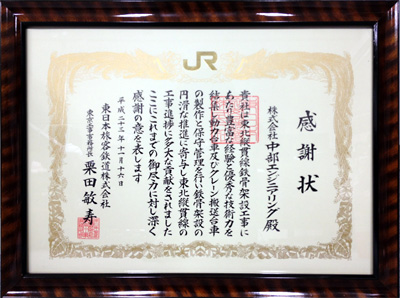 JR
感謝状
株式会社中部エンジニアリング殿
貴社は東北縦貫線鉄骨架設工事に
あたり豊富な経験と優秀な技術力を
結集し動力台車及びクレーン搬送台車
の製作と保守管理を行い鉄骨架設の
円滑な推進に寄与し東北縦貫線の
工事進捗に多大な貢献をされました
ここにこれまでの御尽力に対し深く
感謝の意を表します
平成二十三年十一月十六日
東日本旅客鉄道株式会社
東京工事事務所長 栗田敏寿